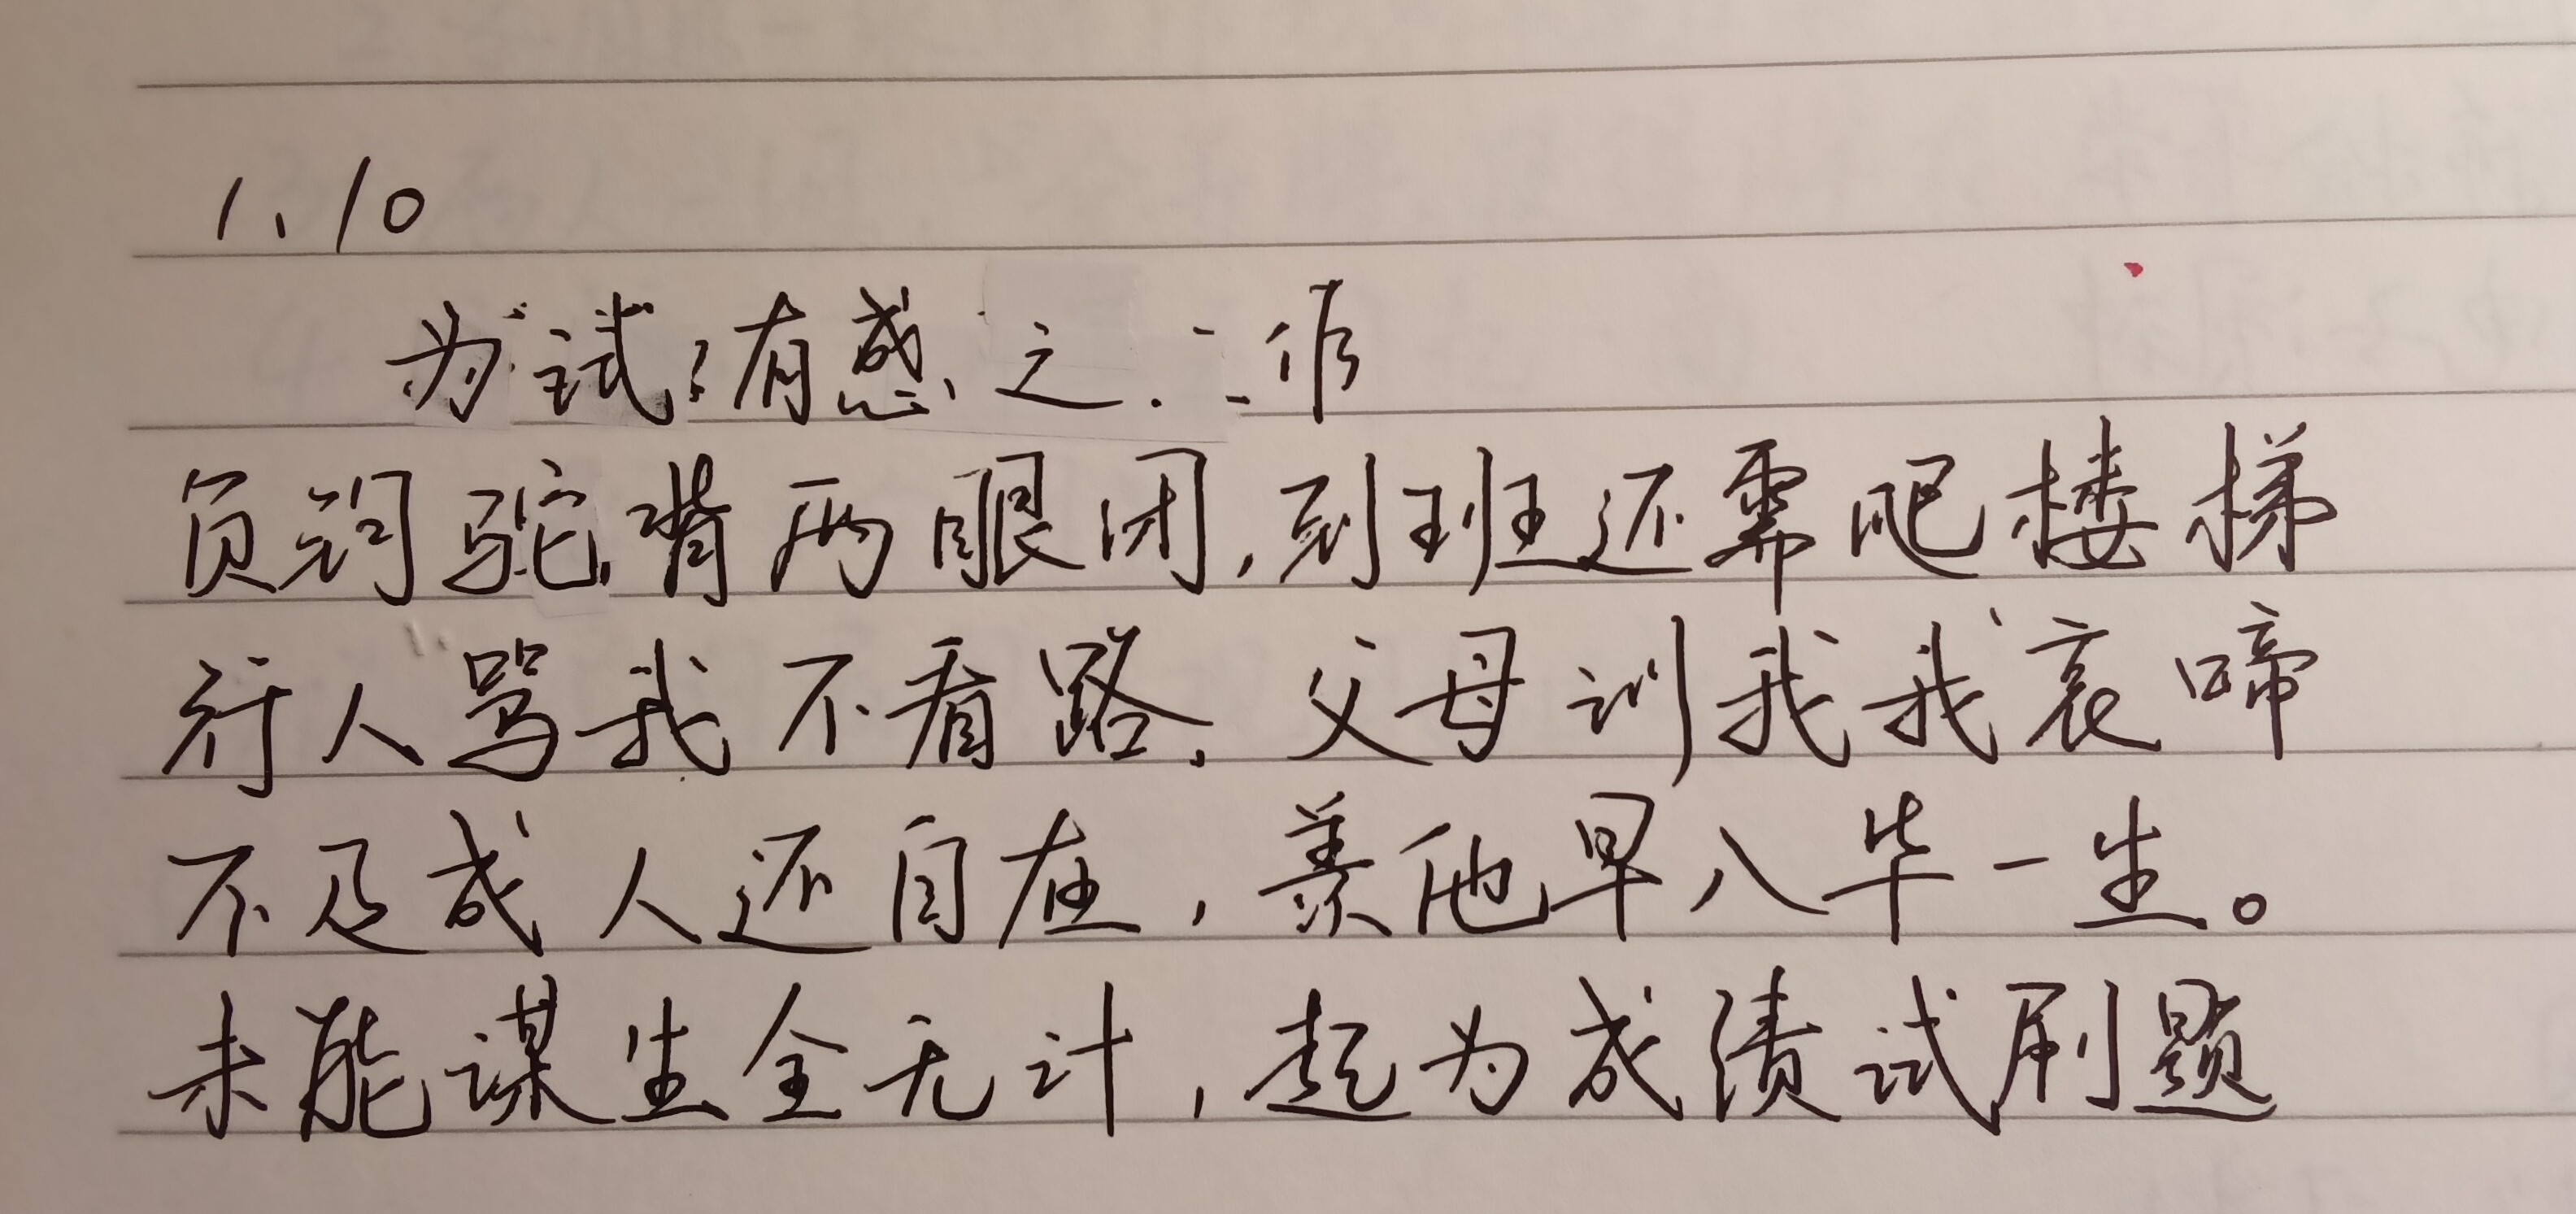 1.10
为试有感之作
负钧驼背两眼闭,到班还需爬楼梯
行人骂我不看路,父母训我我哀啼
不及成人还自在,羡他早八毕一生。
未能谋生全无计,起为成绩试刷题